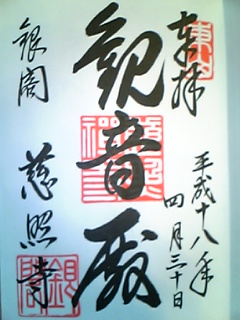 奉拝
平成十八年
四月三十日
観音殿
銀閣
慈照寺